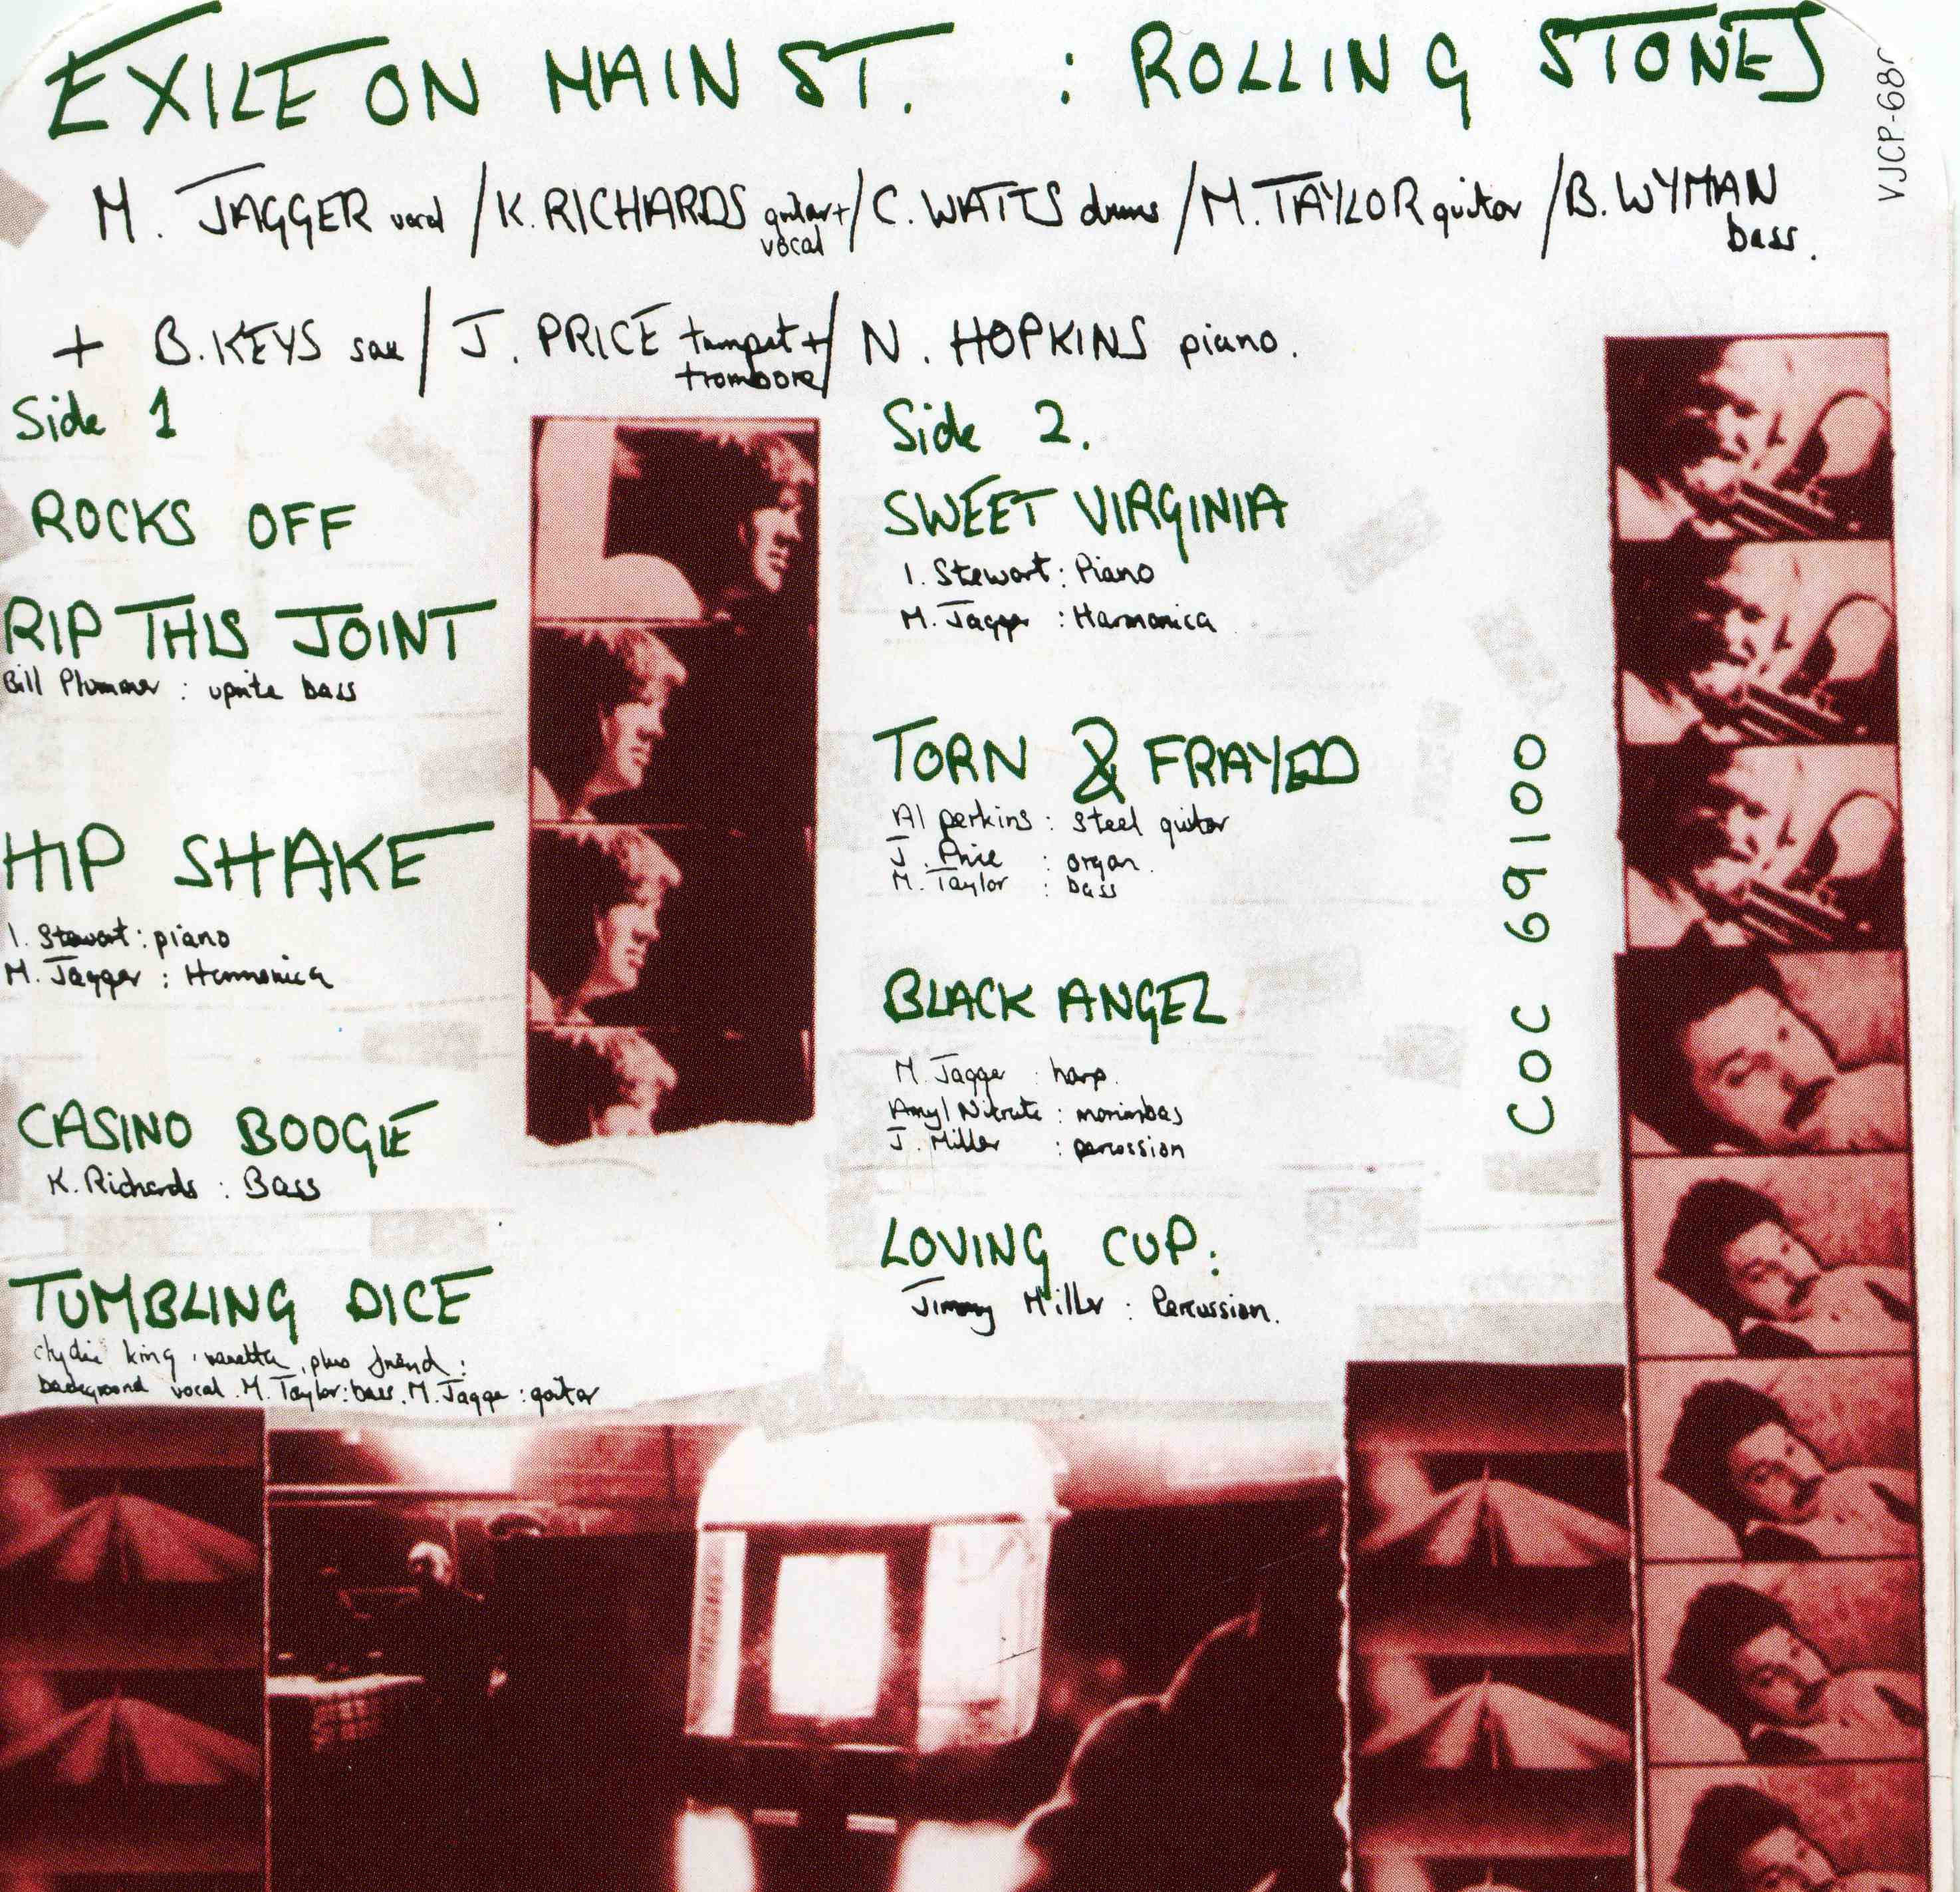 EXILE ON MAIN ST. : ROLLING STONES
M. JAGGER vocal / K. RICHARDS guitar + vocal / C. WATTS drums / M. TAYLOR guitar / B. WYMAN bass.
+ B. KEYS sax / J. PRICE trumpet + trombone / N. HOPKINS piano.
Side 1
ROCKS OFF
RIP THIS JOINT
Bill Plummer : uprite bass
HIP SHAKE
I. Stewart : piano
M. Jagger : Harmonica
CASINO BOOGIE
K. Richards : Bass
TUMBLING DICE
clydie king, vanetta, plus friend :
background vocal. M. Taylor : bass. M. Jagger : guitar
Side 2.
SWEET VIRGINIA
I. Stewart : Piano
M. Jagger : Harmonica
TORN & FRAYED
Al perkins : steel guitar
J. Price : organ.
M. Taylor : bass
BLACK ANGEL
M. Jagger : harp.
Amyl Nitrate : marimbas
J. Miller : percussion
LOVING CUP :
Jimmy Miller : Percussion.
COC 69100
VJCP-68